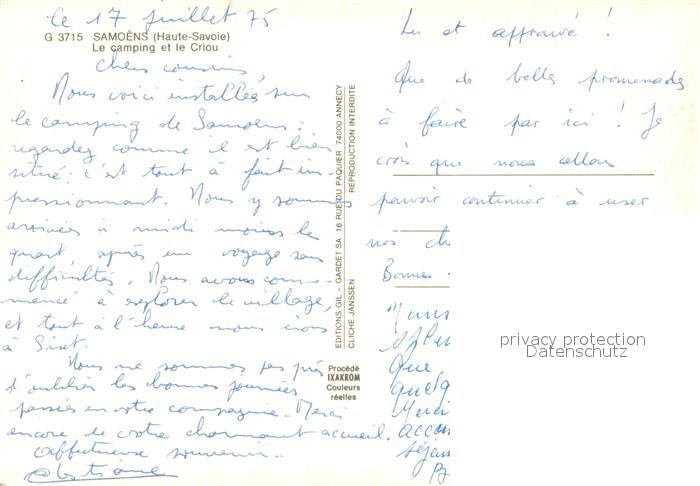 Le 17 juillet 75
G 3715 SAMOËNS (Haute-Savoie)
Le camping et le Criou
Chers cousins,
Nous voici installés sur
le camping de Samoëns :
regardez comme il est bien
situé : c'est tout à fait im-
pressionnant. Nous y sommes
arrivés à midi moins le
quart, après un voyage sans
difficultés. Nous avons com-
mencé à explorer le village,
et tout à l'heure nous irons
à Sixt.
Nous ne sommes pas près
d'oublier les bonnes journées
passées en votre compagnie. Merci
encore de votre charmant accueil.
Affectueux souvenir..
EDITIONS GIL - GARDET SA 16 RUE DU PAQUIER 74000 ANNECY
CLICHÉ JANSSEN REPRODUCTION INTERDITE
Procédé
IXAKROM
Couleurs
réelles
Lu et approuvé !
Que de belles promenades
à faire par ici ! Je
crois que nous allons
pouvoir continuer à user
nos ch
Bonnes
Que
quelq
Merci
accue
séjou
privacy protection
Datenschutz